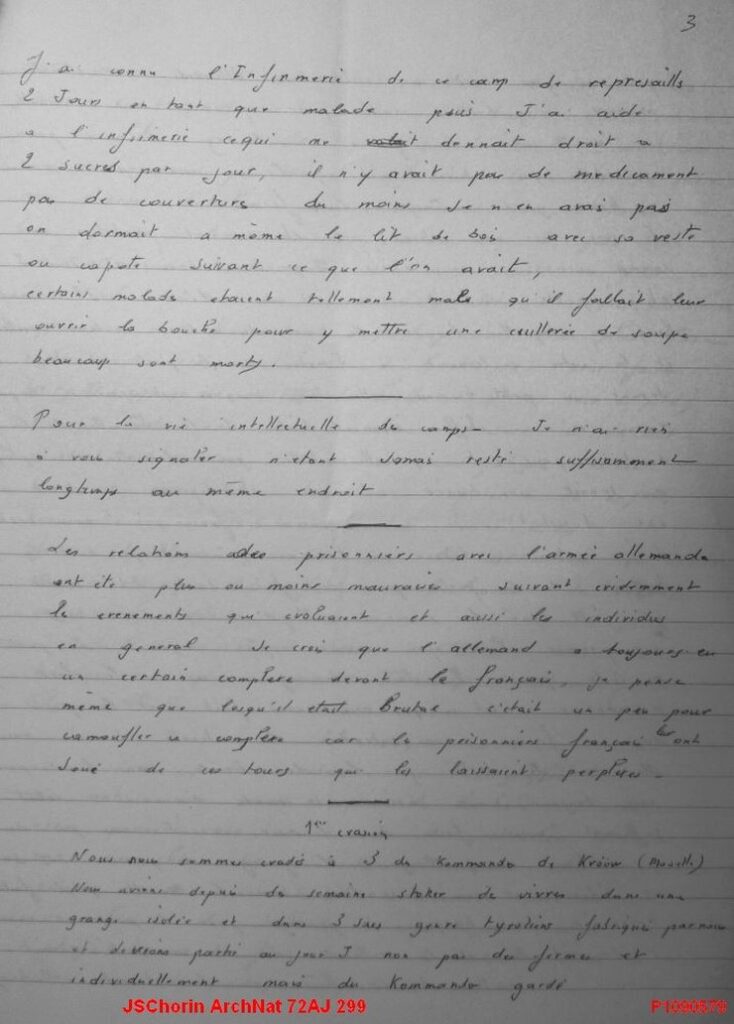 3
J'ai connu l'Infirmerie de ce camp de represaills
2 Jours en tant que malade puis J'ai aidé
a l'infirmerie cequi me donnait droit a
2 sucres par jour, il n'y avait pas de medicament
pas de couverture du moins Je n en avais pas
on dormait a même le lit de bois avec sa veste
ou capote suivant ce que l'on avait,
certains malade etaient tellement mals qu'il fallait leur
ouvrir la bouche pour y mettre une cuillerée de soupe
beaucoup sont morts.
Pour la vie intellectuelle du camps - Je n'ai rien
à vous signaler n'etant Jamais resté suffisamment
longtemps au même endroit
Les relations des prisonniers avec l'armée allemande
ont été plus ou moins mauvaises suivant evidemment
les evenements qui evoluaient et aussi les individus
en general Je crois que l'allemand a toujours eu
un certain complexe devant le français, je pense
même que lorsqu'il etait Brutal c'était un peu pour
camoufler ce complexe car les prisonniers français leur ont
Joué de ces tours qui les laissaient perplexes -
1ere evasion
Nous nous sommes evadés à 3 du Kommando de Kröow (Moselle)
Nous avions depuis des semaines stoker de vivres dans une
grange isolée et dans 3 sacs genre tyroliens fabriqués par nous
et devions partir au jour J non pas des fermes et
individuellement mais du Kommando gardé
JSChorin ArchNat 72AJ 299
P1090579